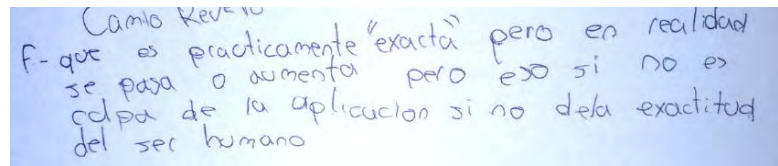 Camilo
F- que es practicamente "exacta" pero en realidad
se pasa o aumenta pero eso si no es
culpa de la aplicacion si no dela exactitud
del ser humano